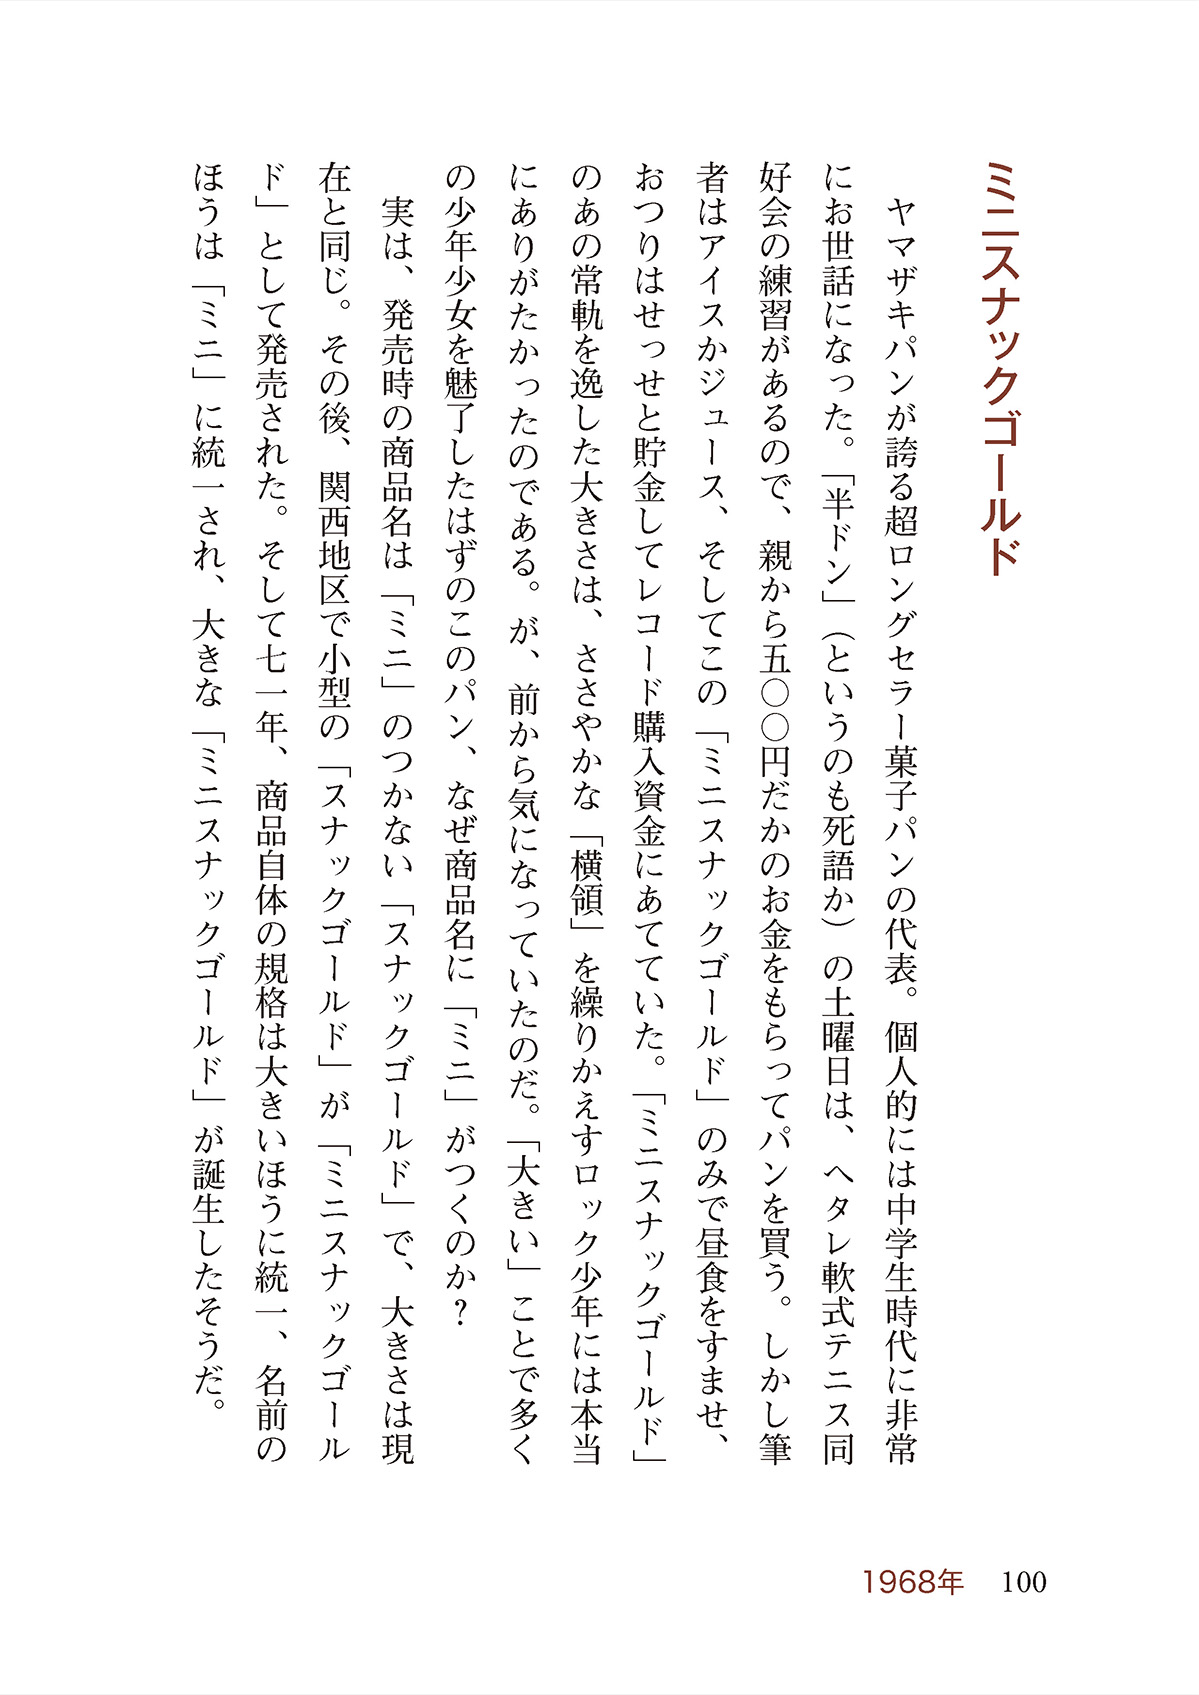 ミニスナックゴールド
ヤマザキパンが誇る超ロングセラー菓子パンの代表。個人的には中学生時代に非常
にお世話になった。「半ドン」（というのも死語か）の土曜日は、ヘタレ軟式テニス同
好会の練習があるので、親から五〇〇円だかのお金をもらってパンを買う。しかし筆
者はアイスかジュース、そしてこの「ミニスナックゴールド」のみで昼食をすませ、
おつりはせっせと貯金してレコード購入資金にあてていた。「ミニスナックゴールド」
のあの常軌を逸した大きさは、ささやかな「横領」を繰りかえすロック少年には本当
にありがたかったのである。が、前から気になっていたのだ。「大きい」ことで多く
の少年少女を魅了したはずのこのパン、なぜ商品名に「ミニ」がつくのか？
実は、発売時の商品名は「ミニ」のつかない「スナックゴールド」で、大きさは現
在と同じ。その後、関西地区で小型の「スナックゴールド」が「ミニスナックゴール
ド」として発売された。そして七一年、商品自体の規格は大きいほうに統一、名前の
ほうは「ミニ」に統一され、大きな「ミニスナックゴールド」が誕生したそうだ。
1968年 100